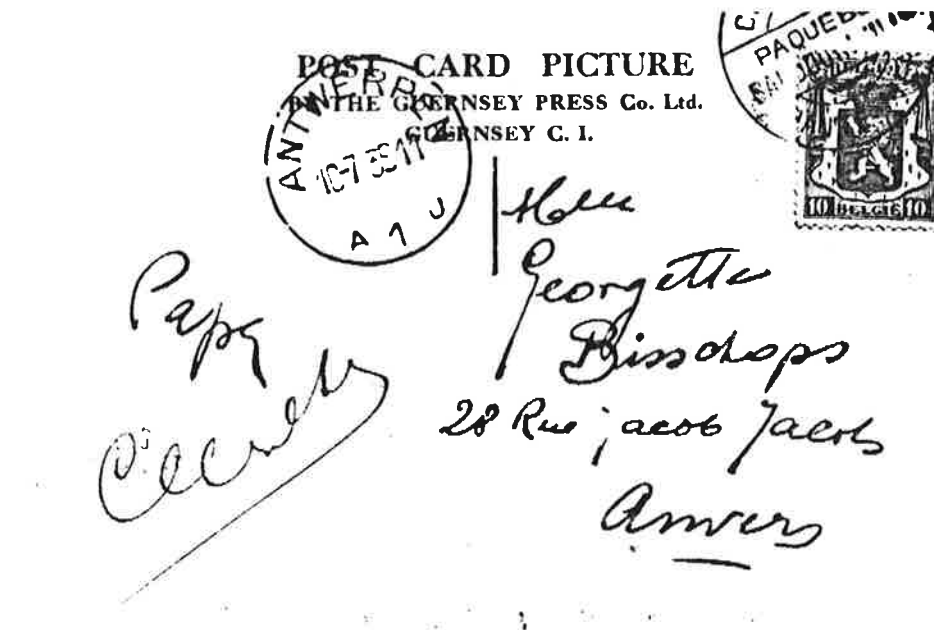 POST CARD PICTURE
BY THE GUERNSEY PRESS Co. Ltd.
GUERNSEY C. I.
ANTWERPEN
10-7 39 17
A 1 J
PAQUEBOT
10 BELGIE 10
Melle
Georgette
Bisschops
28 Rue jacob Jacobs
Anvers
Papa